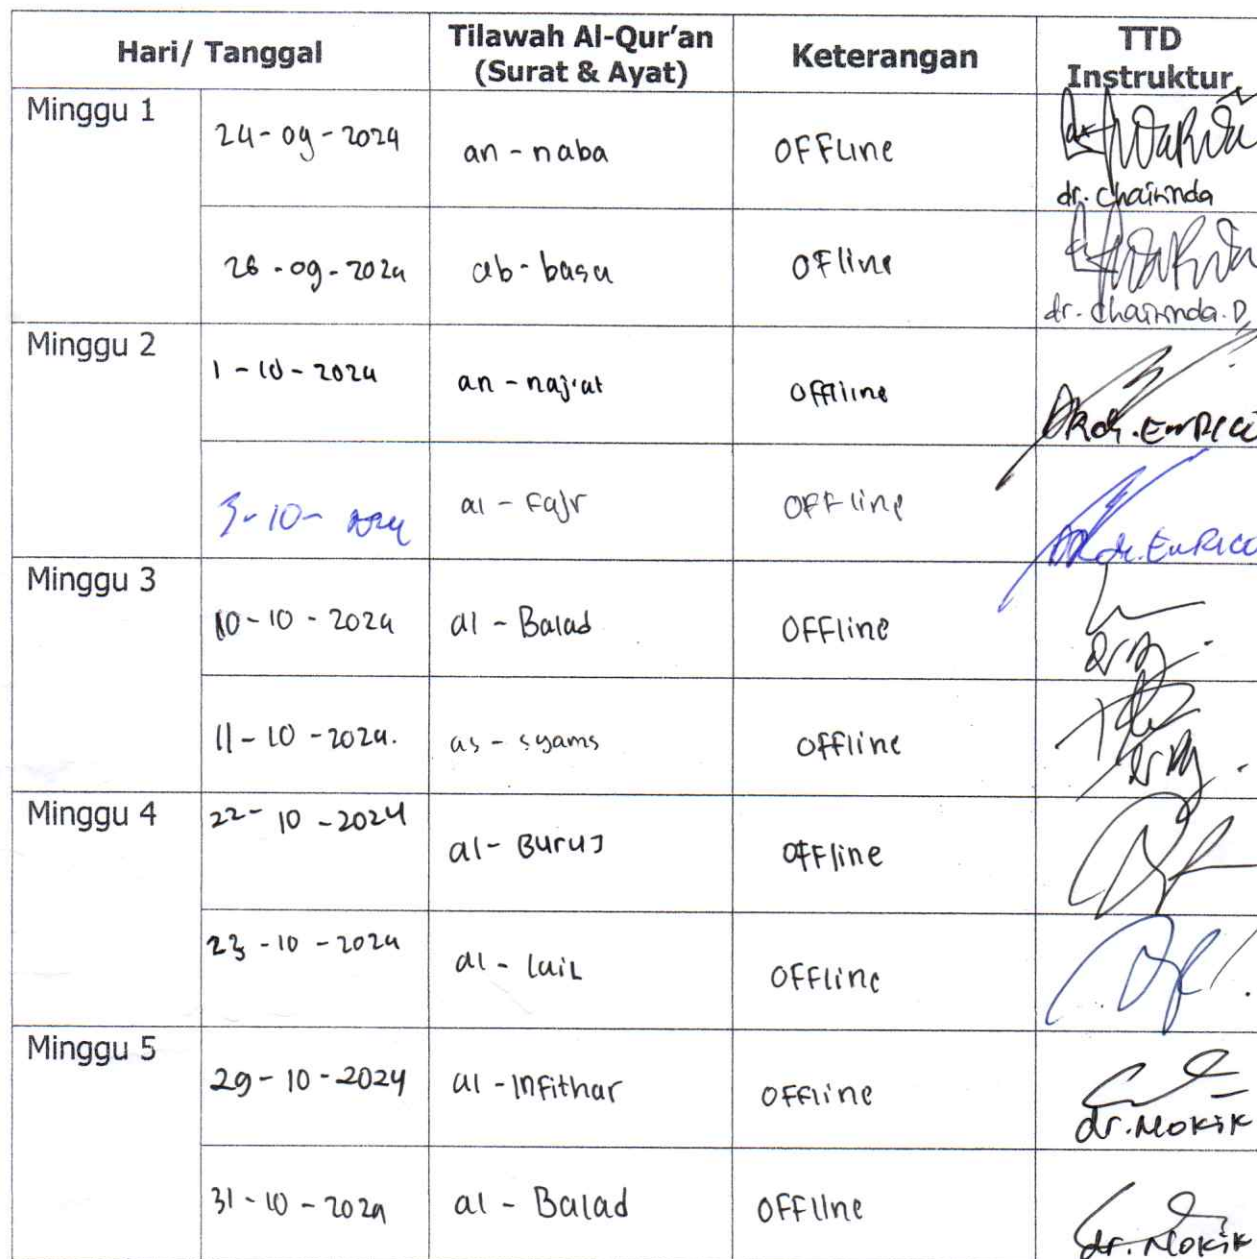 Hari/ Tanggal
Tilawah Al-Qur'an
(Surat & Ayat)
Keterangan
TTD
Instruktur
Minggu 1
24-09-2024 an-naba OFFline
dr. Chairinda
26-09-2024 ab-basa OFline
dr. Chairinda.D
Minggu 2
1-10-2024 an-naj'at Offline
dr. EnRico
3-10-2024 al-Fajr OFFline
dr. EnRico
Minggu 3
10-10-2024 al-Balad OFFline
11-10-2024. as-syams Offline
Minggu 4
22-10-2024 al-Buruj OFFline
23-10-2024 al-lail OFFline
Minggu 5
29-10-2024 al-Infithar OFFline
dr. Mokik
31-10-2024 al-Balad OFFline
dr. Mokik